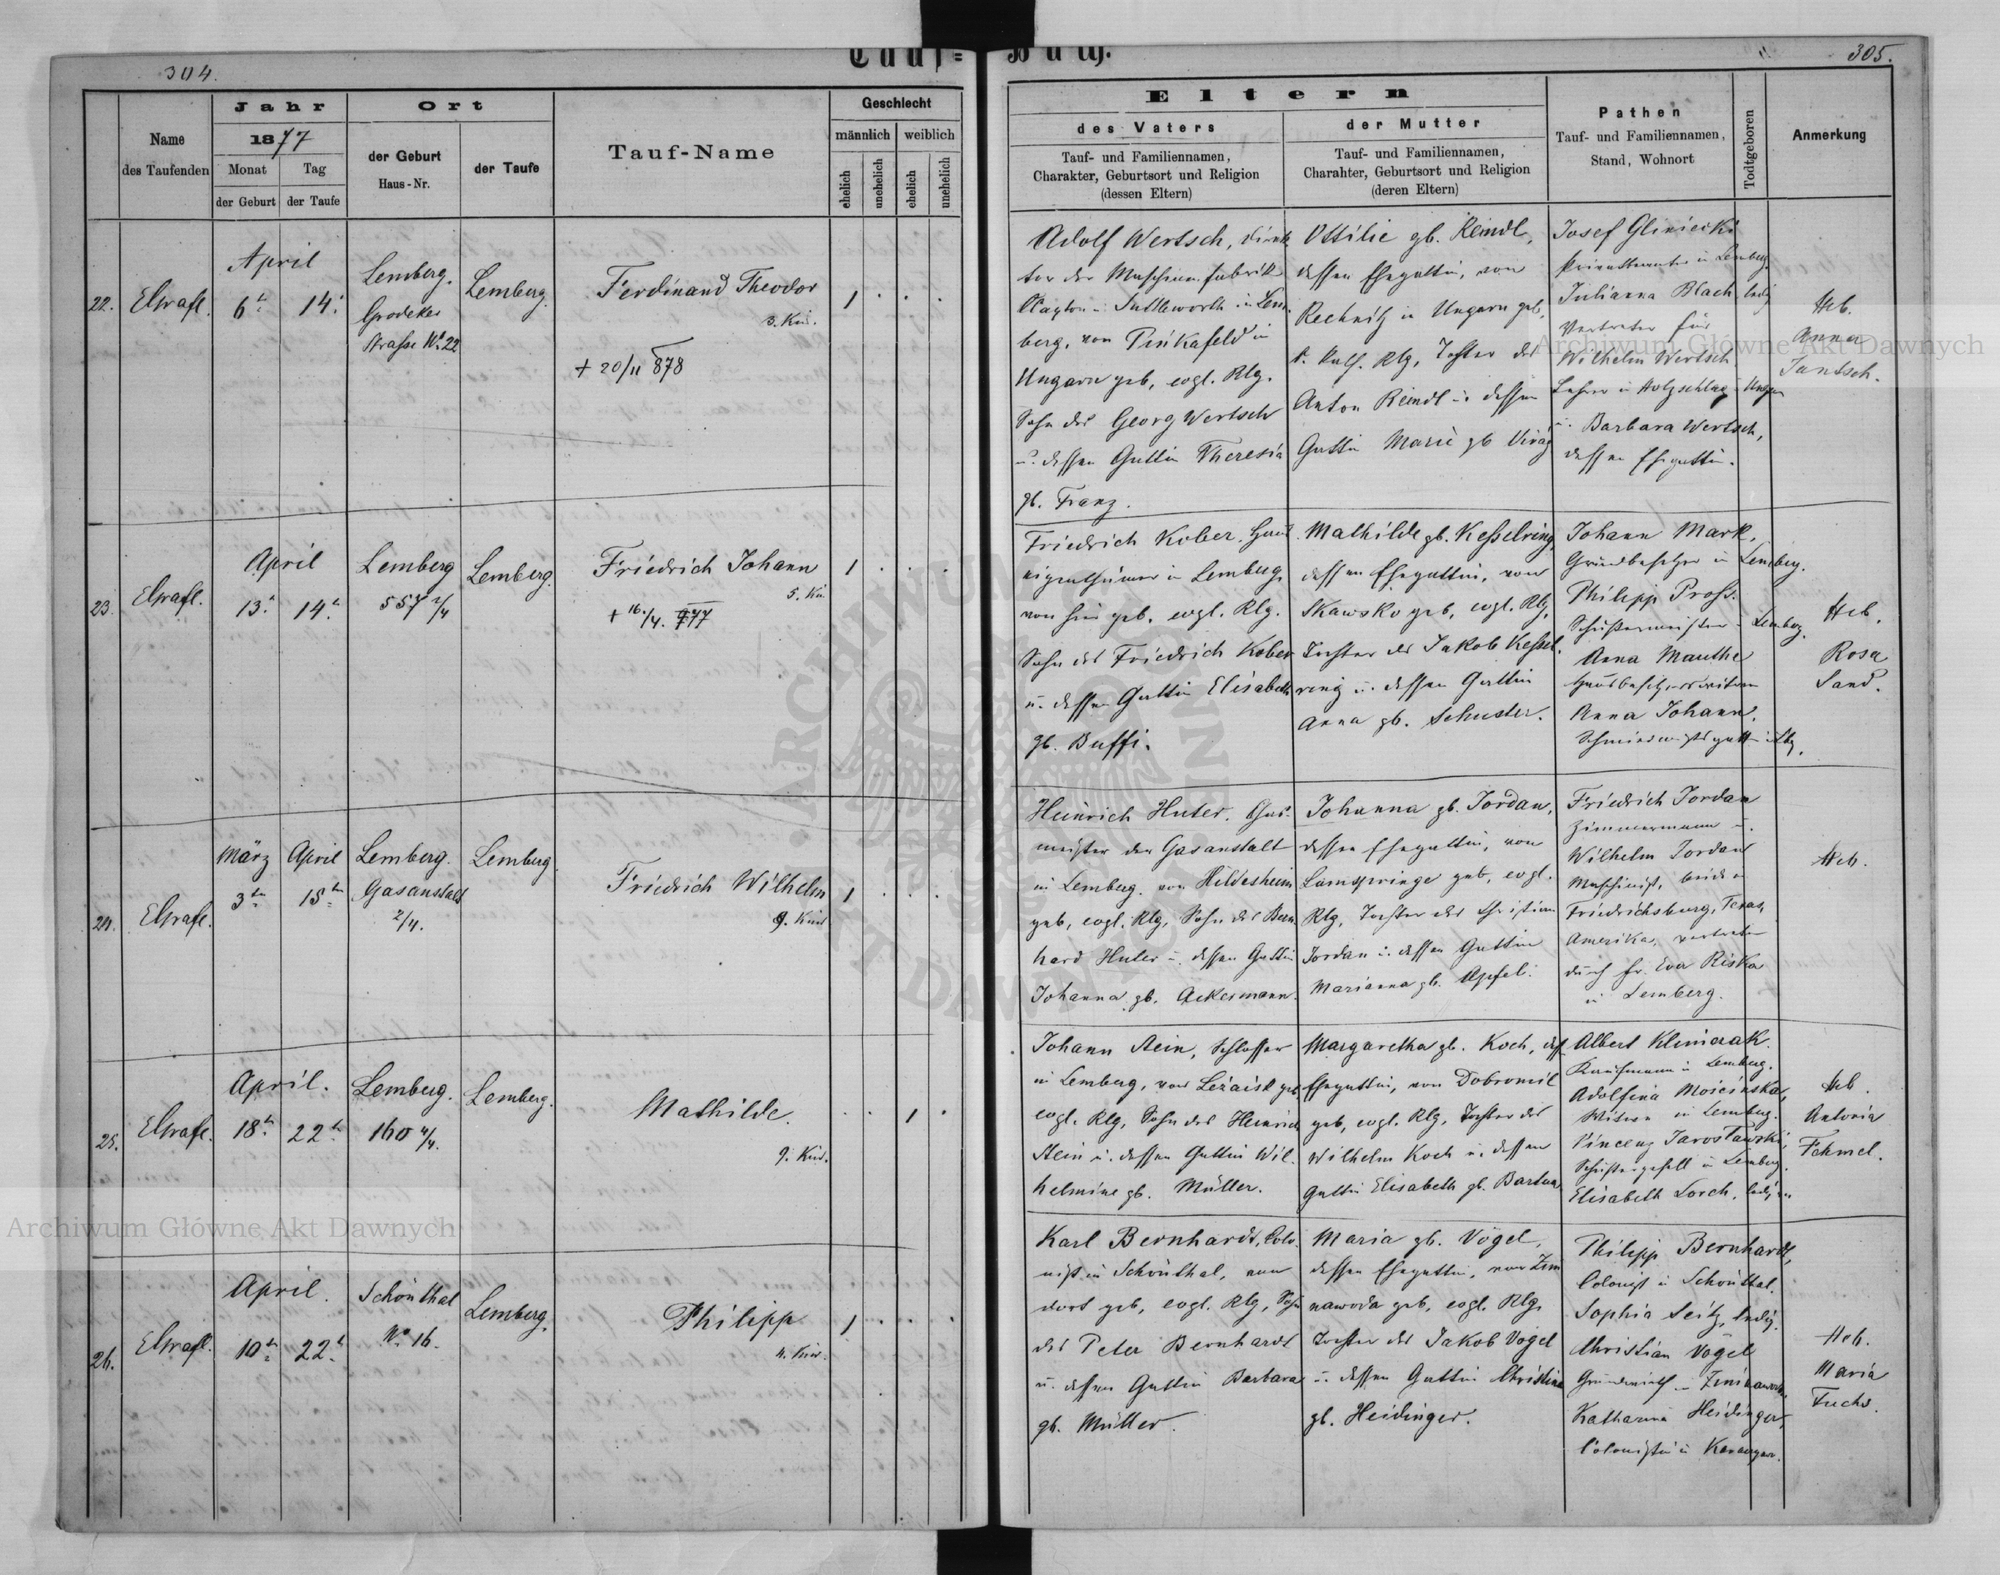 304.
Tauf=
Buch.
305.
Name
des Taufenden
Jahr
1877
Monat
der Geburt
Tag
der Taufe
Ort
der Geburt
Haus-Nr.
der Taufe
Tauf-Name
Geschlecht
männlich
weiblich
ehelich
unehelich
ehelich
unehelich
Eltern
des Vaters
Tauf- und Familiennamen,
Charakter, Geburtsort und Religion
(dessen Eltern)
der Mutter
Tauf- und Familiennamen,
Charahter, Geburtsort und Religion
(deren Eltern)
Pathen
Tauf- und Familiennamen,
Stand, Wohnort
Todtgeboren
Anmerkung
22.
April
6t
14t
Lemberg.
Grodeker
Strasse No 22
Lemberg.
Ferdinand Theodor
3. Kind.
+ 20/11 878
1
Adolf Wertsch, Direk
tor der Maschinenfabrik
Clayton u. Suttleworth in Lem
berg, von Pinkafeld in
Ungarn geb, evgl. Rlg.
Sohn des Georg Wertsch
u. dessen Gattin Theresia
gb. Franz.
Ottilie gb. Reindl,
dessen Ehegattin, von
Rechnitz in Ungarn geb,
r. kath. Rlg, Tochter des
Anton Reindl u. dessen
Gattin Marie gb Virág
Josef Gliniecki
in Lemberg.
Julianna Blach, ledig
Vertreter für
Wilhelm Wertsch
Lehrer in Holzschlag in Ungarn
u. Barbara Wertsch,
dessen Ehegattin.
Heb.
Anna
Jantsch.
23.
April
13t
14t
Lemberg
557 2/4
Lemberg.
Friedrich Johann
5. Kind
+ 16./4. 877
1
Friedrich Kober, Haus
eigenthümer in Lemberg,
von hier geb, evgl. Rlg.
Sohn des Friedrich Kober
u. dessen Gattin Elisabeth
gb. Buffi.
Mathilde gb. Kesselring,
dessen Ehegattin, von
Skawsko geb, evgl. Rlg,
Tochter des Jakob Kessel
ring u. dessen Gattin
Anna gb. Schuster.
Johann Mark,
Grundbesitzer in Lemberg.
Philipp Pross.
Schustermeister in Lemberg.
Anna Manthe
Hausbesitzerswitwe
Anna Johann,
Schmiedmeistersgattin in Lbg.
Heb.
Rosa
Sand.
24.
März
April
3ten
15ten
Lemberg.
Gasanstalt
2/4.
Lemberg
Friedrich Wilhelm
9. Kind
1
Heinrich Huter, Gas
meister der Gasanstalt
in Lemberg, von Hildesheim
geb, evgl. Rlg, Sohn des Bern
hard Huter u. dessen Gattin
Johanna gb. Ackermann.
Johanna gb. Jordan,
dessen Ehegattin, von
Lamspringe geb, evgl.
Rlg, Tochter des Christian
Jordan u. dessen Gattin
Marianna gb. Apfel.
Friedrich Jordan
Zimmermann u.
Wilhelm Jordan
Maschinist, beide in
Friedrichsburg, Texas,
Amerika, vertreten
durch Fr. Eva Riska
in Lemberg.
Heb.
25.
April.
18t
22t
Lemberg.
160 4/4.
Lemberg.
Mathilde.
9. Kind.
1
Johann Stein, Schlosser
in Lemberg, von Leżaisk geb
evgl. Rlg, Sohn des Heinrich
Stein u. dessen Gattin Wil
helmine gb. Müller.
Margaretha gb. Koch, dess
Ehegattin, von Dobromil
geb, evgl. Rlg, Tochter des
Wilhelm Koch u. dessen
Gattin Elisabeth gb.
Albert Klimczak.
Kaufmann in Lemberg.
Adolfina Moscinska,
Witwe in Lemberg.
Vincenz Jarosławski,
Schustergesell in Lemberg.
Elisabeth Lorch, ledig
Heb.
Antonia
Fehmel.
26.
April.
10t
22t
Schönthal
No 16.
Lemberg.
Philipp
4. Kind.
1
Karl Bernhardt, Colo
nist in Schönthal, von
dort geb, evgl. Rlg, Sohn
des Peter Bernhardt
u. dessen Gattin Barbara
gb. Müller.
Maria gb. Vogel,
dessen Ehegattin, von Zim
nawoda geb, evgl. Rlg,
Tochter des Jakob Vogel
u. dessen Gattin Christina
gb. Heidinger.
Philipp Bernhardt,
Colonist in Schönthal.
Sophia Seitz, ledig.
Christian Vogel
Grundwirth in Zimnawoda.
Katharina Heidinger,
Colonistin in
Heb.
Maria
Fuchs.
Archiwum Główne Akt Dawnych
Archiwum Główne Akt Dawnych